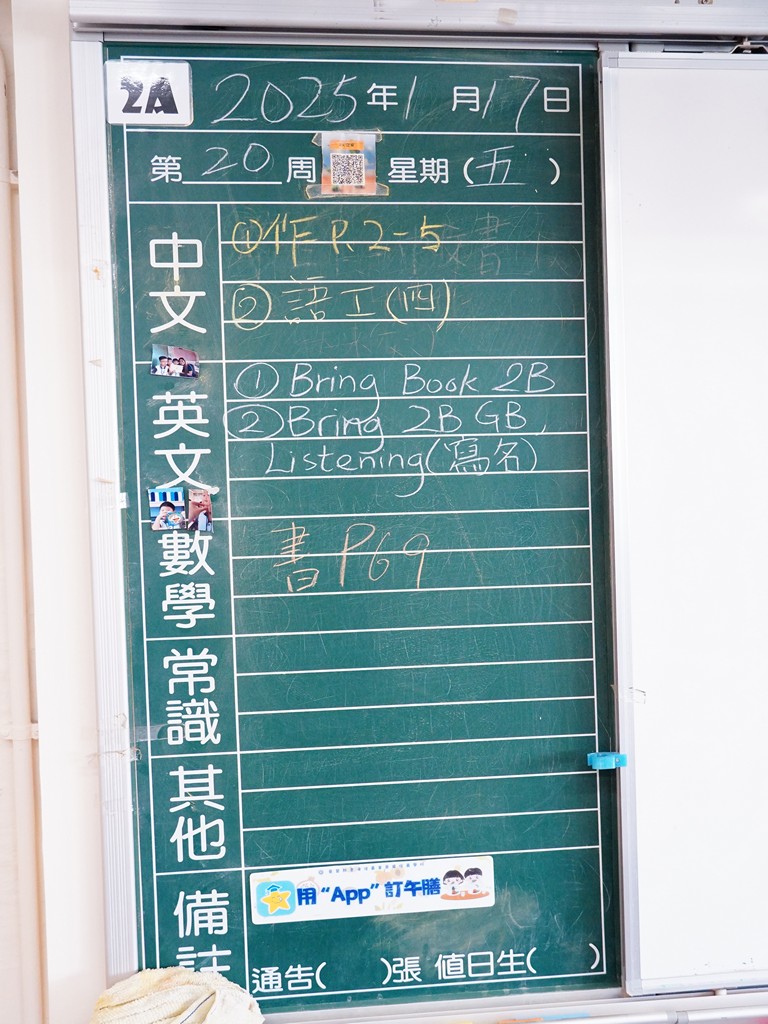 2A
2025年1月17日
第20周 星期(五)
中文
①作 P.2-5
②語工(四)
英文
①Bring Book 2B
②Bring 2B GB,
Listening(寫名)
數學
書P69
常識
其他
備註
用“App”訂午膳
通告( )張 值日生( )